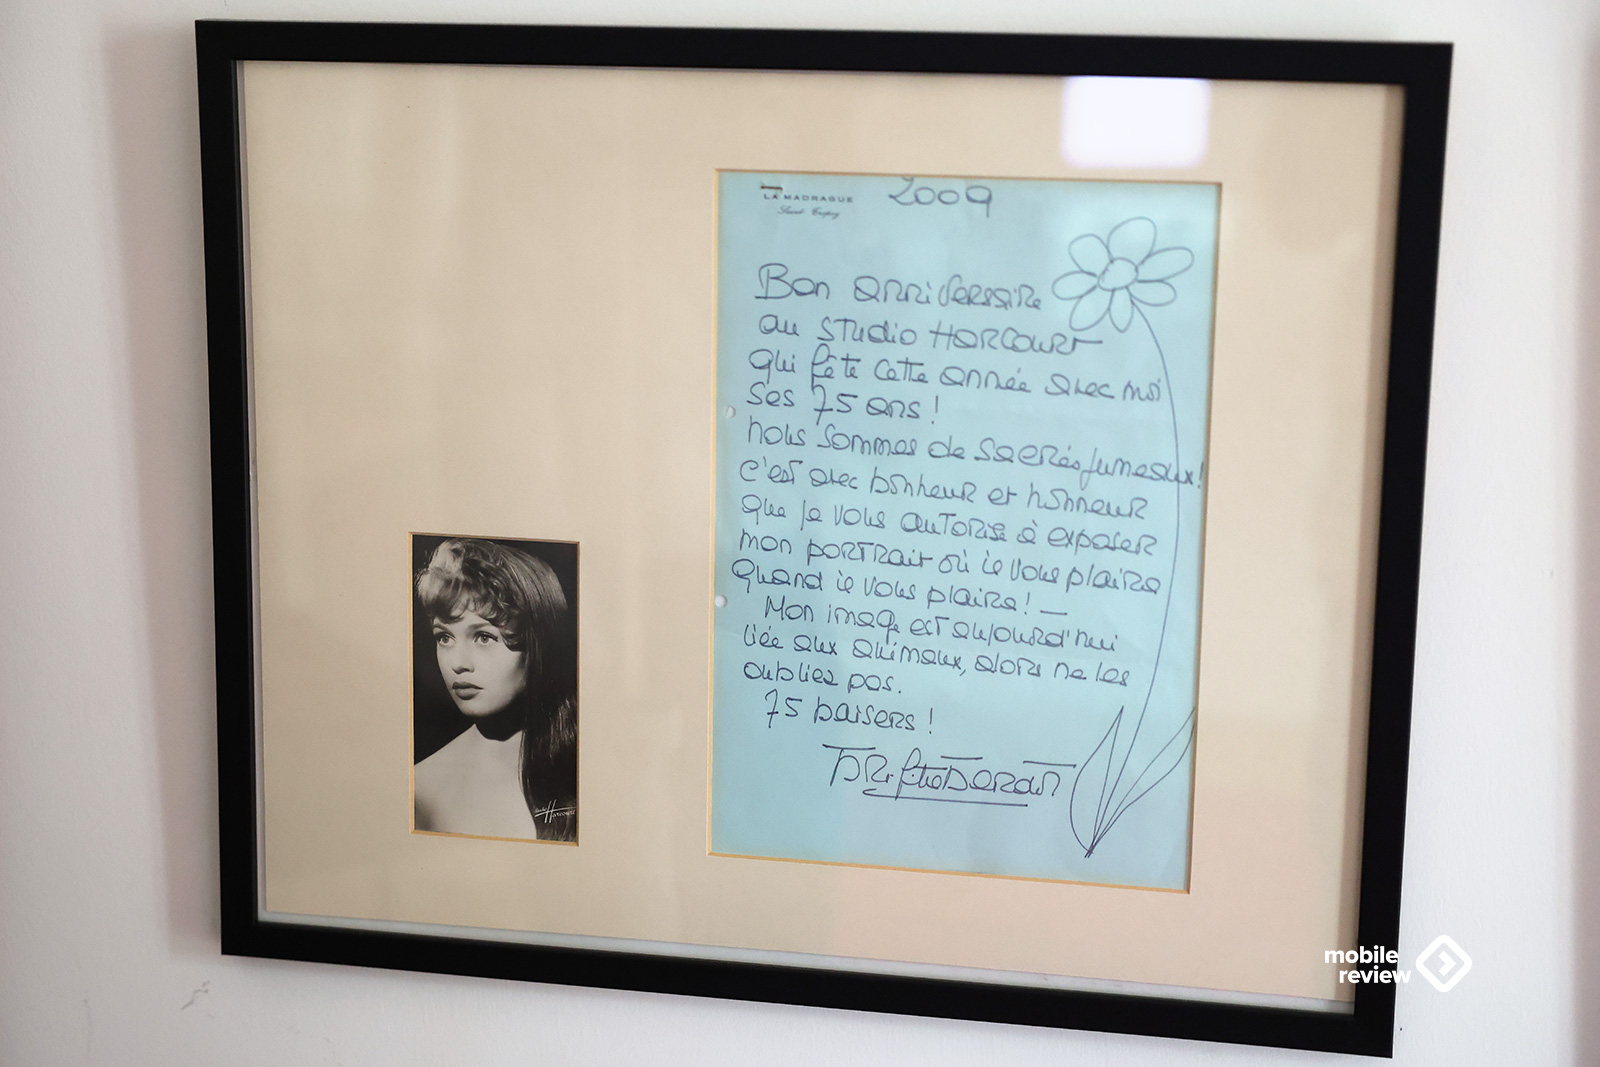 LA MADRAGUE
Saint-Tropez
2009
Bon anniversaire
au Studio Harcourt
qui fête cette année avec moi
ses 75 ans !
nous sommes de sacrés jumeaux !
c'est avec bonheur et honneur
que je vous autorise à exposer
mon portrait où il vous plaira
quand il vous plaira ! —
Mon image est aujourd'hui
liée aux animaux, alors ne les
oubliez pas.
75 baisers !
Brigitte Bardot
Harcourt
mobile
review